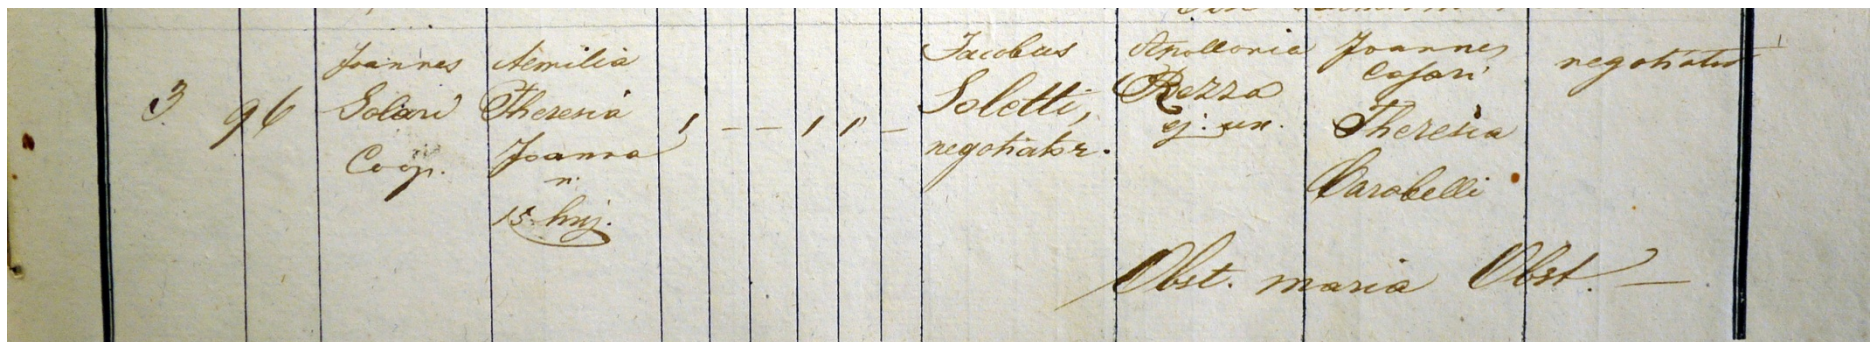 3
96
Joannes
Solari
Coop.
Aemilia
Theresia
Joanna
n.
15. huj.
Jacobus
Soletti,
negotiator.
Apollonia
Rezza
ej. ux.
Joannes
Casari
Theresia
Carabelli
negotiator
Obst. maria Obst. —